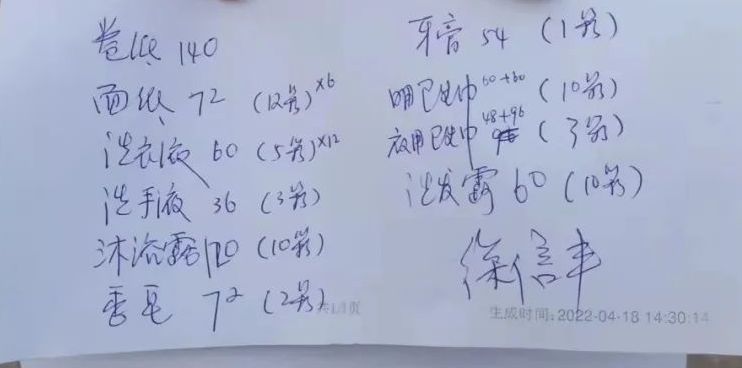 卷纸 140
面纸 72 (12箱)×6
洗衣液 60 (5箱)×12
洗手液 36 (3箱)
沐浴露 120 (10箱)
香皂 72 (2箱)
共1/1页
牙膏 54 (1箱)
日用卫生巾 60+60 (10箱)
夜用卫生巾 48+96 (3箱)
洗发露 60 (10箱)
徐信丰
生成时间:2022-04-18 14:30:14